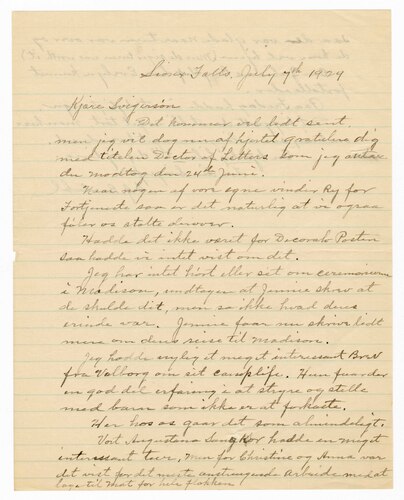 Sioux Falls, July 7th 1929
Kjære Svigersøn
Det kommer vel lidt sent
men jeg vil dog nu af hjertet gratulere dig
med titelen Doctor of Letters som jeg
du modtog den 24th Juni.
Naar nogen af vore egne vinder Ry for
Fortjeneste saa er det naturlig at vi ogsaa
føler os stolte derover.
Hadde det ikke værit for Decorah Posten
saa hadde vi intet vist om det.
Jeg har intet hørt eller set om ceremonierne
i Madison, undtagen at Jennie skrev at
de skulde dit, men sa ikke hvad deres
erinde var. Jennie faar nu skrive lidt
mere om deres reise til Madison.
Jeg hadde nylig et meget interessant Brev
fra Valborg om sit camplife. Hun faar der
en god del erfaring i at styre og stelle
med barn som ikke er at forkaste.
Her hos os gaar det som almindeligt.
Vort Augustana Sang Kor hadde en meget
interessant teur, men for Christine og Anna var
det vist for det meste anstrengende Arbeide med at
lage til Mat for hele flokken